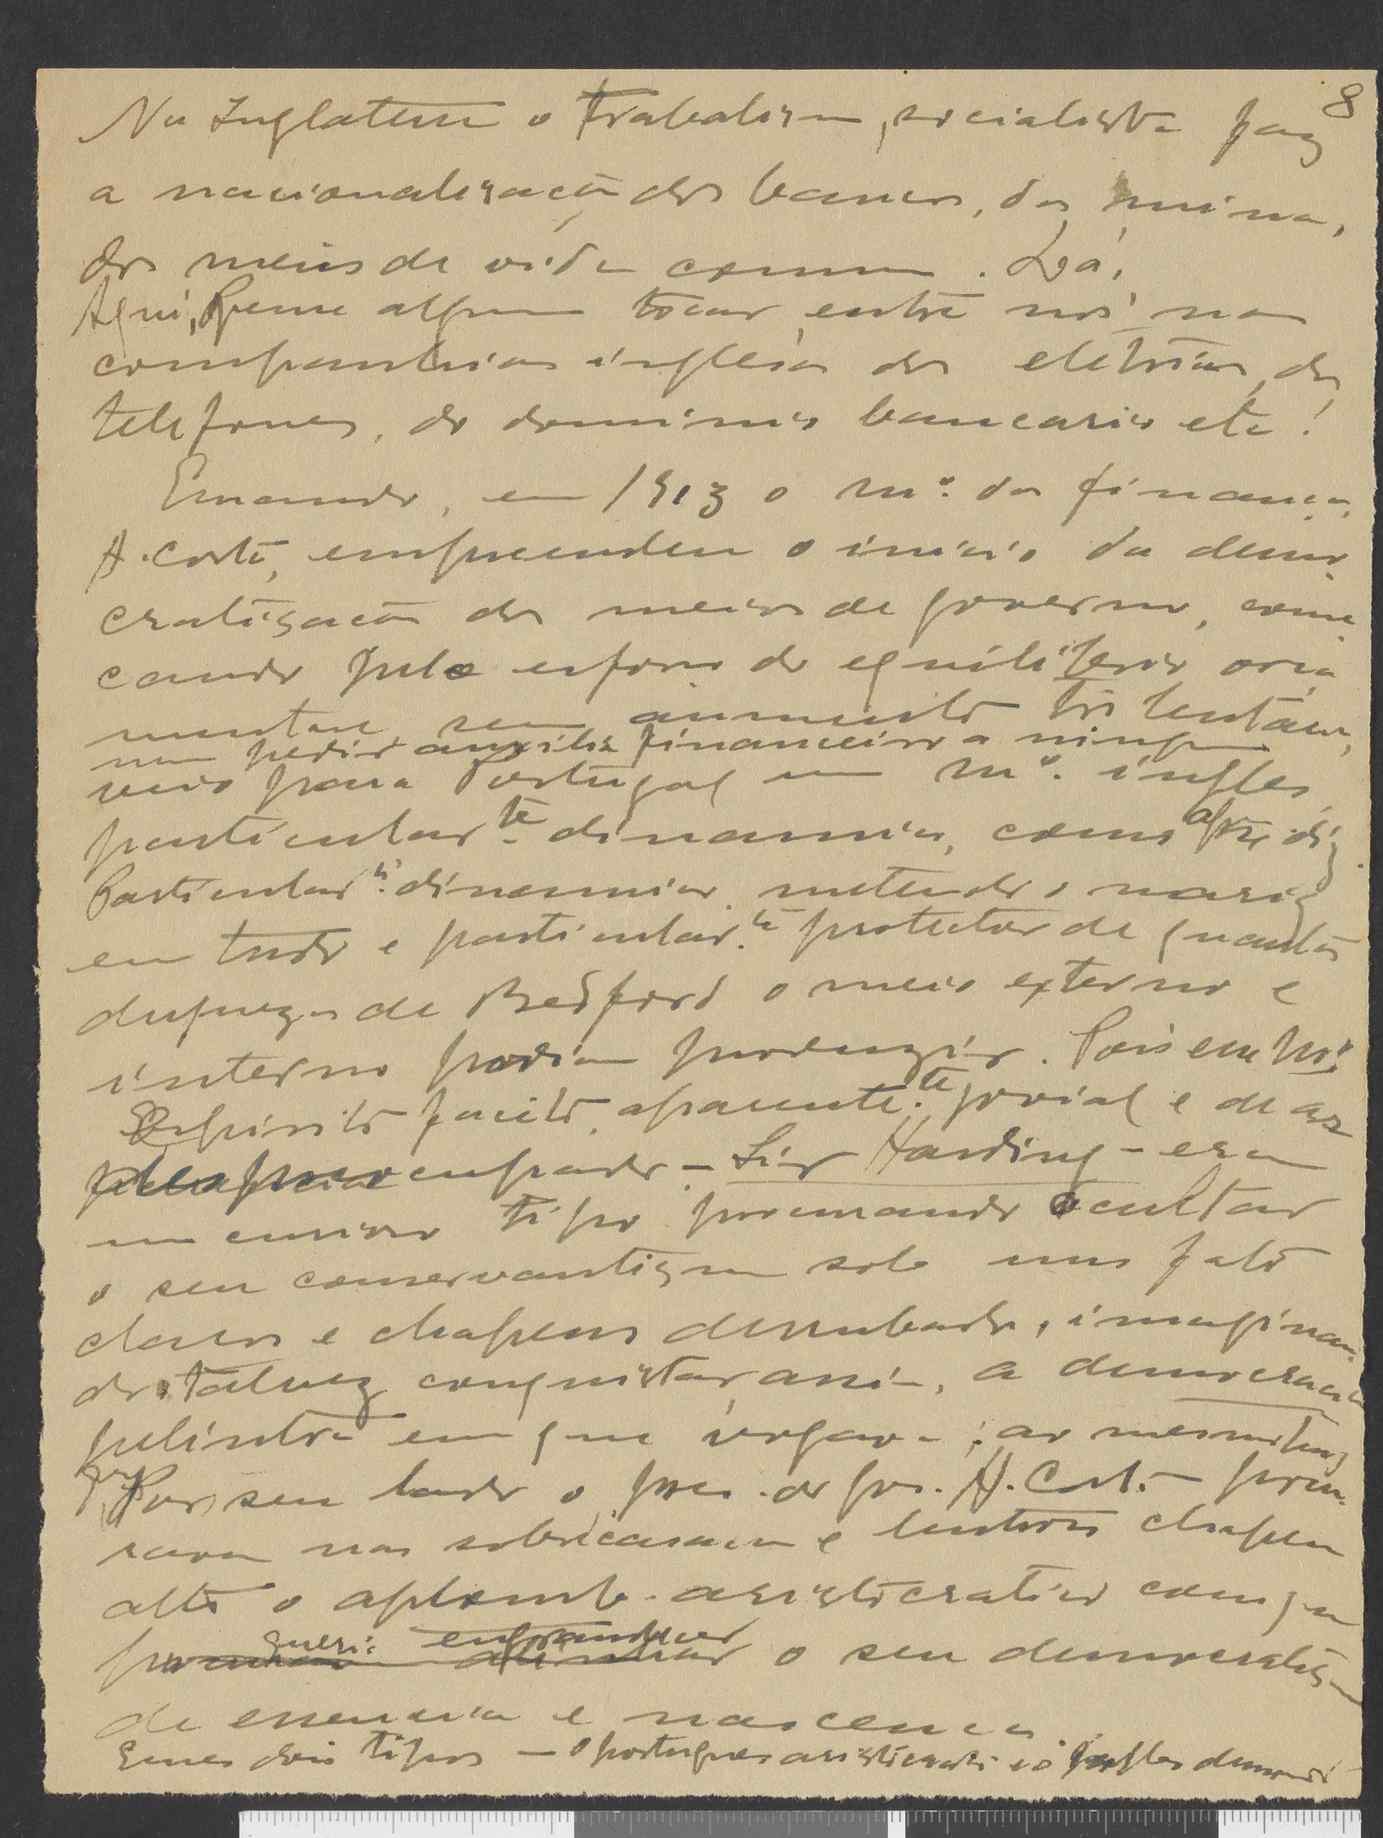 8
Na Inglaterra o trabalismo, socialista faz
a nacionalização dos bancos, das minas,
dos meios de vida comum. Lá.
Aqui, alguem tocar entre nós nas
companhias inglesas dos eletricos, dos
telefones, do dominio bancario etc!
Emquando, em 1913 o mº. das finanças,
A. Costa, empreendeu o inicio da demo-
cratisação dos meios de governo, come-
çando pelo esforço do equilibrio orça-
mental sem aumento tributario,
nem pedir auxilio financeiro a ninguem
veio para Portugal um mº. ingles,
particularte. dinamico, como diz.
Particularte. dinamico, metendo o nariz
em tudo e particularte. protector de quantos
de Bedford o meio externo e
interno podia produzir. Pois em
Espirito facêto, aparentete. jovial e de ar
- Sir Harding - era
um curioso tipo procurando ocultar
o seu conservantismo sob uns fatos
claros e chapeus desabados, imaginan-
do talvez conquistar assim, a democracia
pelintra em que vogava; ao mesmo tempo
que Por seu lado o pres. do gov. A. Costa procu-
rava nas sobrecasacas e lustroso chapeu
alto o aplomb aristocratico com que
queria engrandecer o seu democratismo
de essencia e nascença
Esses dois tipos - o portugues aristocrata e o ingles democrata